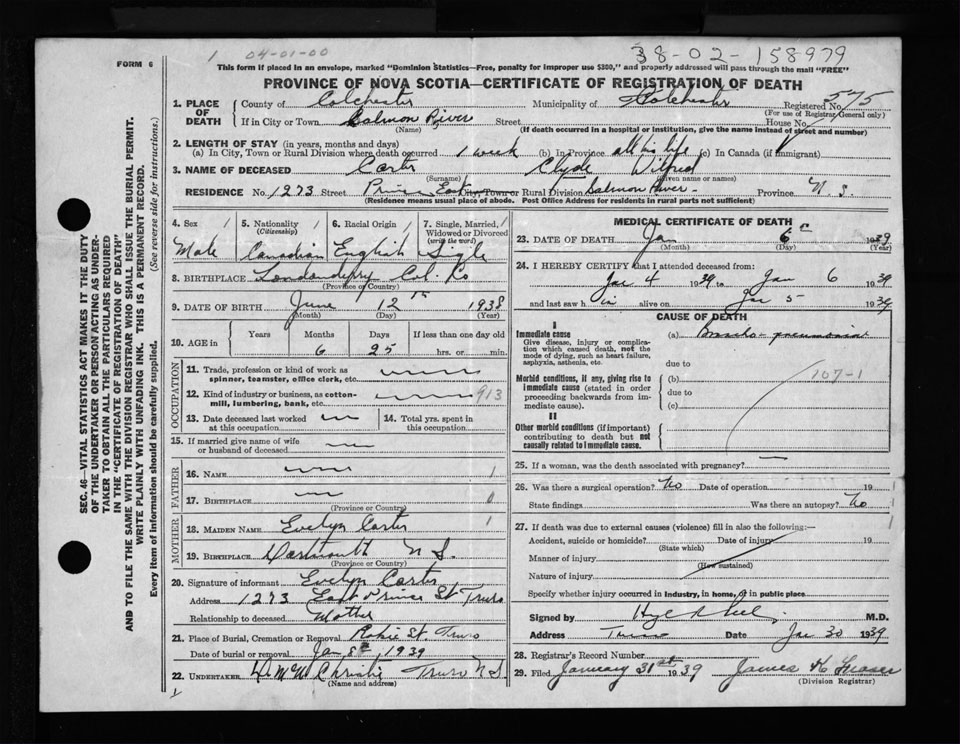 1 04-01-00
38-02-158979
FORM 6
This form if placed in an envelope, marked "Dominion Statistics—Free, penalty for improper use $300," and properly addressed will pass through the mail "FREE"
PROVINCE OF NOVA SCOTIA—CERTIFICATE OF REGISTRATION OF DEATH
SEC. 46—VITAL STATISTICS ACT MAKES IT THE DUTY
OF THE UNDERTAKER OR PERSON ACTING AS UNDER-
TAKER TO OBTAIN ALL THE PARTICULARS REQUIRED
IN THE "CERTIFICATE OF REGISTRATION OF DEATH"
AND TO FILE THE SAME WITH THE DIVISION REGISTRAR WHO SHALL ISSUE THE BURIAL PERMIT.
WRITE PLAINLY WITH UNFADING INK. THIS IS A PERMANENT RECORD.
Every item of information should be carefully supplied. (See reverse side for instructions.)
1. PLACE OF DEATH County of Colchester Municipality of Colchester Registered No. 575
(For use of Registrar General only)
If in City or Town Salmon River Street House No.
(Name) (If death occurred in a hospital or institution, give the name instead of street and number)
2. LENGTH OF STAY (in years, months and days)
(a) In City, Town or Rural Division where death occurred 1 week (b) In Province all his life (c) In Canada (if immigrant)
3. NAME OF DECEASED Carter Clyde Wilfred
(Surname) (Given name or names)
RESIDENCE No. 1273 Street Prince East City, Town or Rural Division Salmon River Province N.S.
(Residence means usual place of abode. Post Office Address for residents in rural parts not sufficient)
4. Sex 1 5. Nationality 1 6. Racial Origin 1 7. Single, Married, 1
(Citizenship) Widowed or Divorced
(write the word)
Male Canadian English Sigle
8. BIRTHPLACE Londonderry Col. Co
(Province or Country)
9. DATE OF BIRTH June 12th 1938
(Month) (Day) (Year)
10. AGE in Years Months Days If less than one day old
6 25 hrs. or min.
OCCUPATION
11. Trade, profession or kind of work as
spinner, teamster, office clerk, etc.
12. Kind of industry or business, as cotton-
mill, lumbering, bank, etc. 913
13. Date deceased last worked
at this occupation 14. Total yrs. spent in
this occupation
15. If married give name of wife
or husband of deceased
FATHER
16. NAME 1
17. BIRTHPLACE 0
(Province or Country)
MOTHER
18. MAIDEN NAME Evelyn Carter 1
19. BIRTHPLACE Dartmouth N S.
(Province or Country)
20. Signature of informant Evelyn Carter
Address 1273 East Prince St Truro
Relationship to deceased Mother
21. Place of Burial, Cremation or Removal Robie St Truro
Date of burial or removal Jan 8th, 1939
22. UNDERTAKER Christie Truro N S
(Name and address)
MEDICAL CERTIFICATE OF DEATH
23. DATE OF DEATH Jan 6th 1939
(Month) (Day) (Year)
24. I HEREBY CERTIFY that I attended deceased from:
Jan 4 1939 to Jan 6 1939
and last saw him alive on Jan 5 1939
CAUSE OF DEATH
I
Immediate cause
Give disease, injury or complica-
tion which caused death, not the
mode of dying, such as heart failure,
asphyxia, asthenia, etc.
(a) Broncho-pneumonia
due to
Morbid conditions, if any, giving rise to
immediate cause (stated in order
proceeding backwards from im-
mediate cause).
(b) 107-1
due to
(c)
II
Other morbid conditions (if important)
contributing to death but not
causally related to immediate cause.
25. If a woman, was the death associated with pregnancy?
26. Was there a surgical operation? No Date of operation 19 1
State findings Was there an autopsy? No 1
27. If death was due to external causes (violence) fill in also the following:—
Accident, suicide or homicide? Date of injury 19
(State which)
Manner of injury
(How sustained)
Nature of injury
Specify whether injury occurred in Industry, in home, or in public place
Signed by M.D.
Address Truro Date Jan 30 1939
28. Registrar's Record Number
29. Filed January 31st 1939 James K Fraser
(Division Registrar)